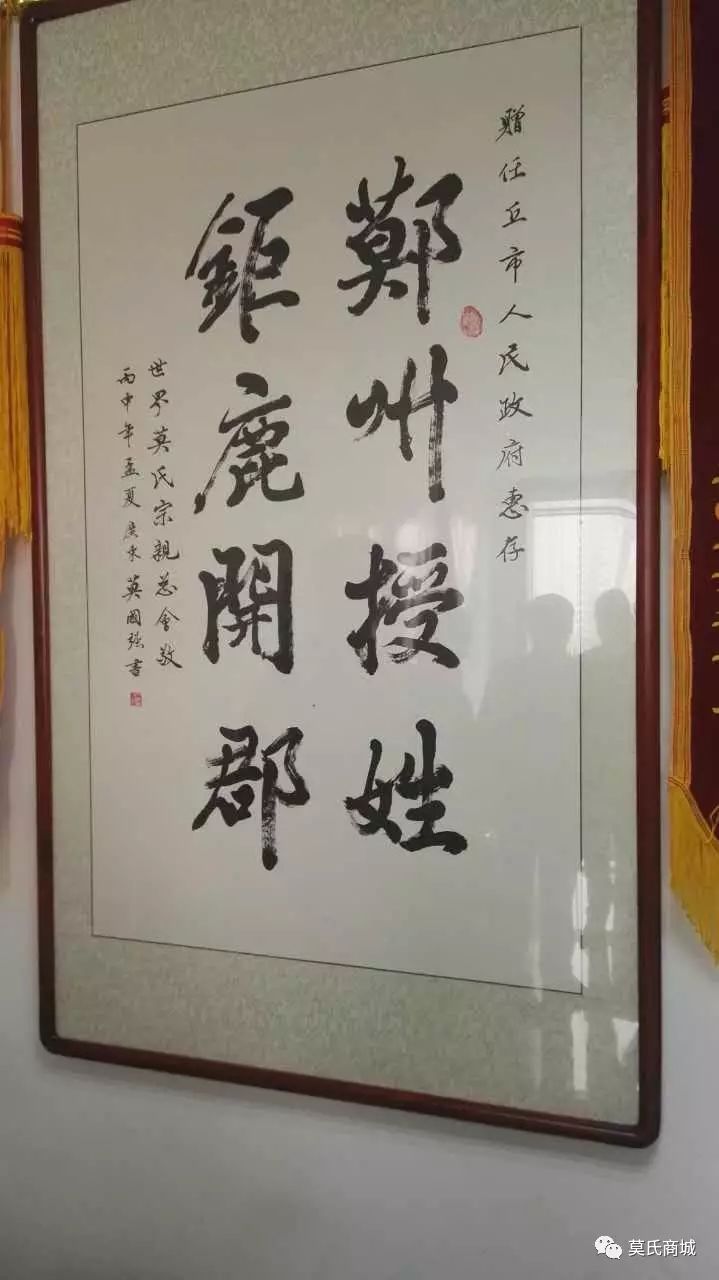 赠任丘市人民政府惠存
鄚州授姓
鉅鹿開郡
世界莫氏宗親总會敬
丙申年孟夏庚末莫國强書
莫氏商城